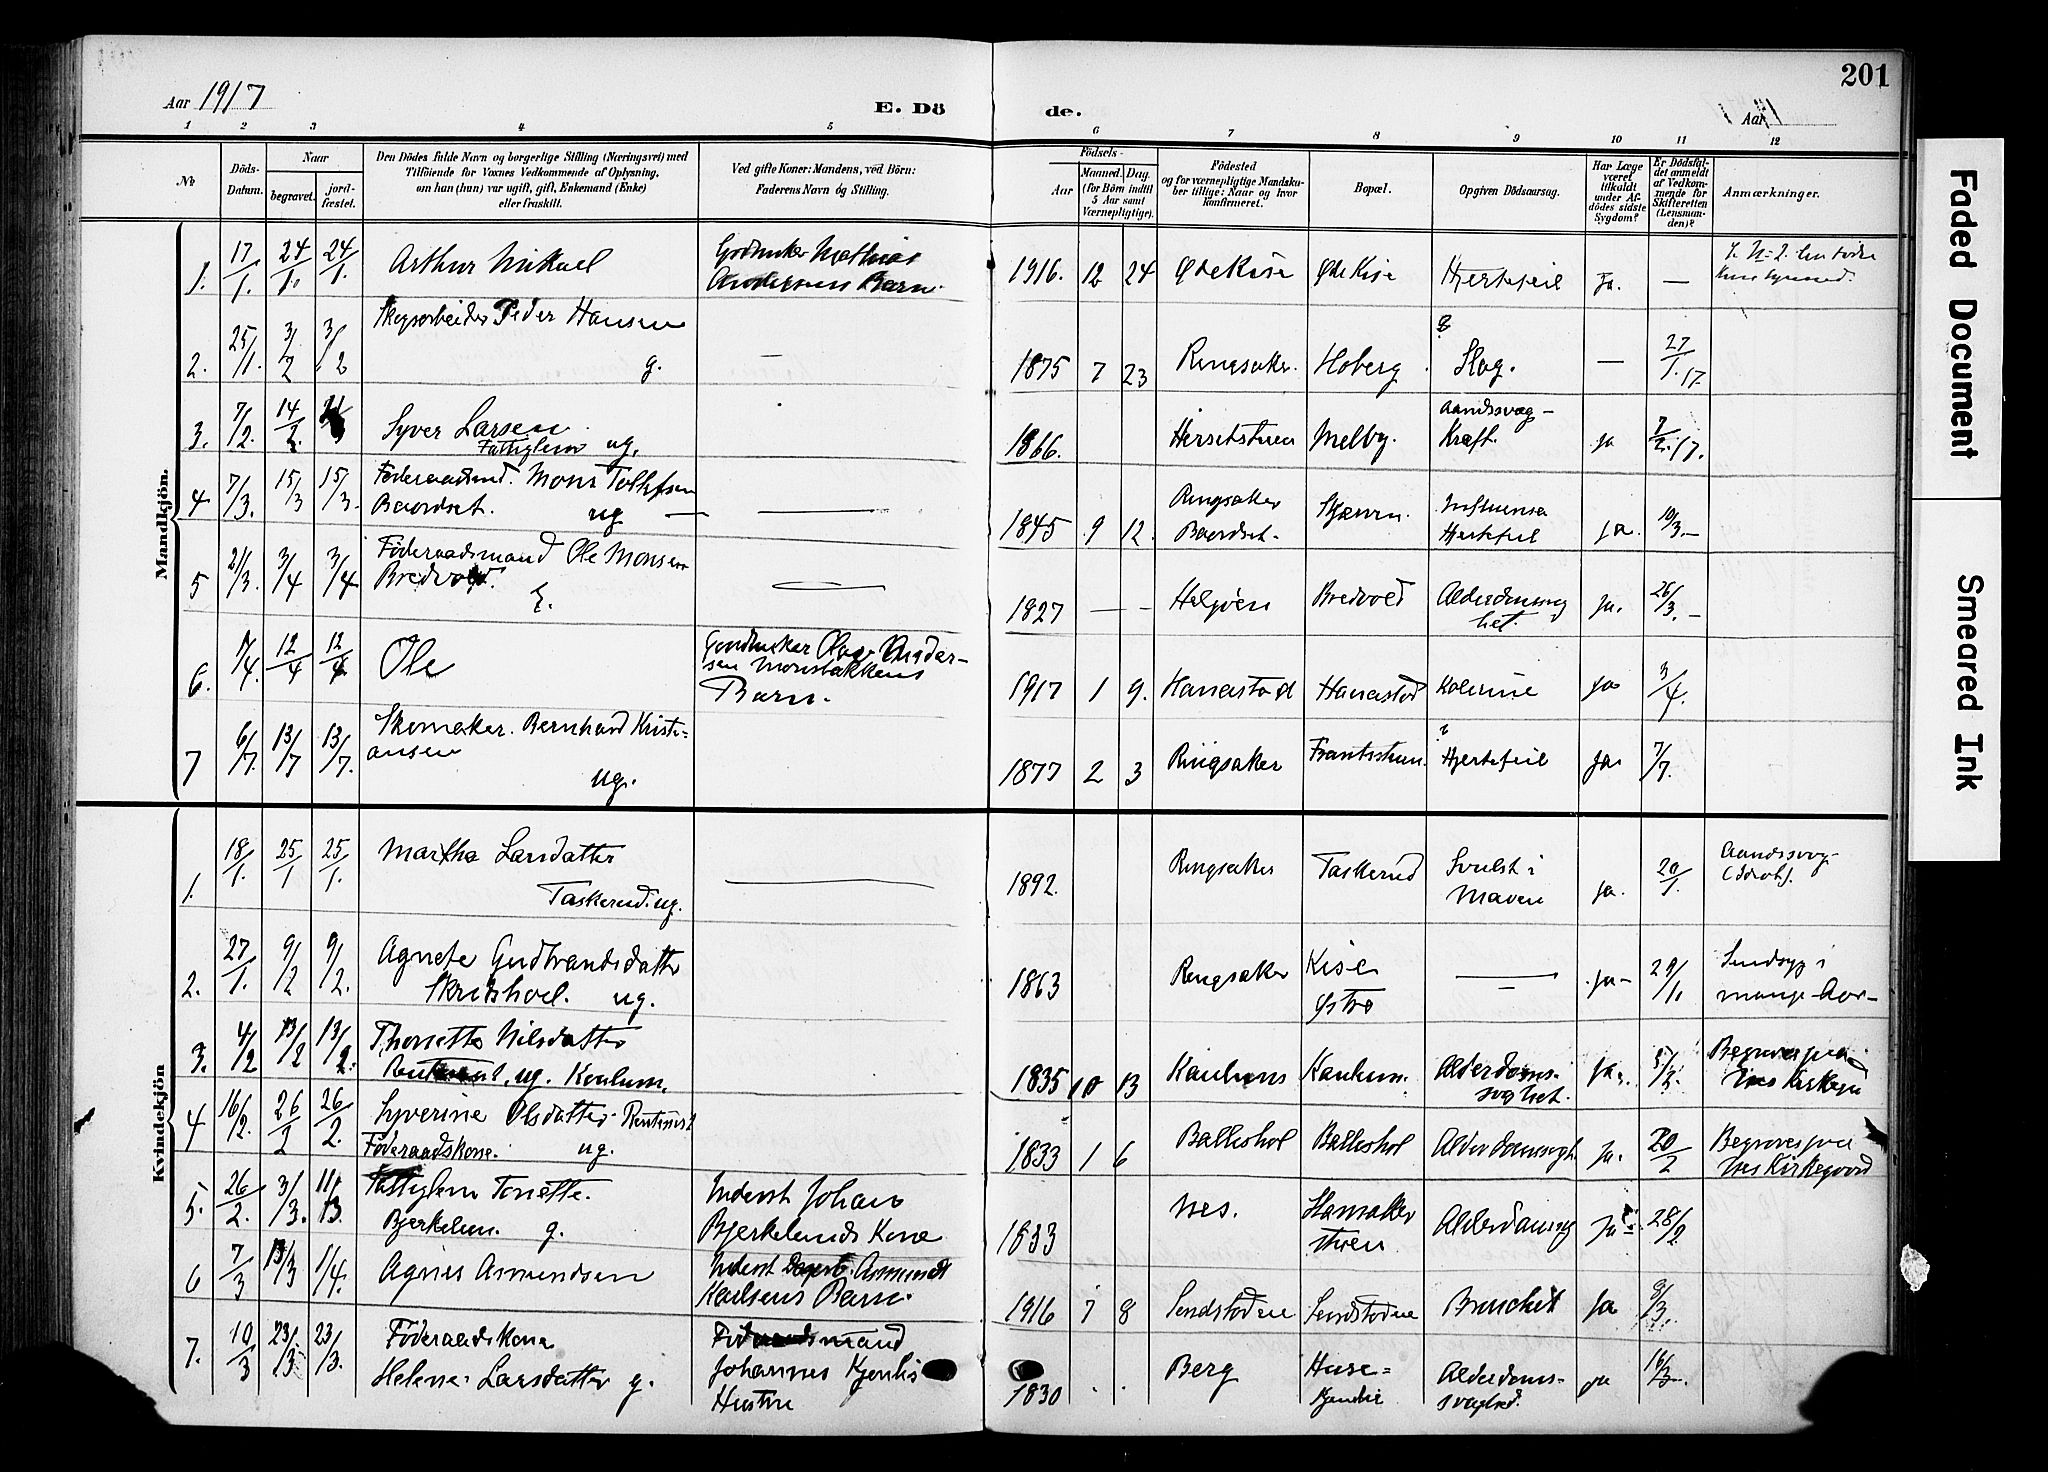 201
Aar 1917
E. Dö
de.
Aar 191
1 2 3 4 5 6 7 8 9 10 11 12
No
Döds-Datum.
Naar
begravet.
jord-fæstet.
Den Dödes fulde Navn og borgerlige Stilling (Næringsvei) med
Tilföiende for Voxnes Vedkommende af Oplysning,
om han (hun) var ugift, gift, Enkemand (Enke)
eller fraskilt.
Ved gifte Koner: Mandens, ved Börn:
Faderens Navn og Stilling.
Födsels-
Aar
Maaned. Dag.
(for Börn indtil
5 Aar samt
Værnepligtige).
Födested
og for værnepligtige Mandska-
ber tillige: Naar og hvor
konfirmeret.
Bopæl.
Opgiven Dödsaarsag.
Har Læge
været
tilkaldt
under Af-
dödes sidste
Sygdom?
Er Dödsfal-
det anmeldt
af Vedkom-
mende for
Skifteretten
(Lensman-
den)?
Anmærkninger.
Mandkjön.
1. 17/1. 24/1. 24/1. Arthur Mikael
Mathias
Andersens Barn. 1916. 12 24 Øde Kise Øde Kise Hjertefeil Ja. —
2. 25/1. 3/2 3/2 Skogsarbeider Peder Hansen
g. — 1875 7 23 Ringsaker. Hoberg ? Slag. — 27/1.17.
3. 7/2. 14/2. Syver Larsen
Fattiglem ug. 1866. Melby. Aandssvag-
Kræft. ja 7/2.17.
4 7/3. 15/3 15/3. Föderaadsmd. Mons Tollefsen
Baardset. ug — 1845 9 12. Ringsaker
Baardset. Influensa
Hjertefeil Ja. 10/3.-
5 21/3. 3/4 3/4 Föderaadsmand Ole Monsen
Bredvold.
E. 1827 — — Helgöen Bredvold Alderdomssvag
het. Ja. 26/3.-
6. 1/4. 12/4 12/4 Ole
Ander-
sen Monsbakkens
Barn. 1917 1 9. Hanastad Hanastad ja 3/4.
7 6/7. 13/7 13/7. Skomaker. Bernhard Kristi=
ansen
ug. 1877 2 3 Ringsaker ? Hjertefeil Ja 7/7.
Kvindekjön
1. 18/1. 25/1 25/1. Martha Larsdatter
Taskerud. ug. 1892. Ringsaker Taskerud Svulst i
Maven Ja. 20/1. Aandssvag-
(Idiot).
2. 27/1. 9/2 9/2. Agnete Gudbrandsdatter
Skredshoel. ug. 1863 Ringsaker Kise
østre — Ja- 29/1. Sindsyg i
mange Aar-
3. 4/2 13/2 13/2. Thonette Nilsdatter
ug. Kaulum. 1835 10 13 Kaulums Kaulum. Alderdoms-
svaghet. Ja. 5/2. Begraves paa
Nes Kirkegrd
4 16/2. 26/2 26/2. Syverine Olsdatter. Rentenist
Föderaadskone. ug. 1833 1 6 Balleshol Balleshol Alderdomssvagh. Ja. 20/2 Begraves paa
Nes Kirkegaard
5. 26/2. 3/3. 11/3. Fattiglem Tonette.
Bjerkelun. g. Inderst Johan
Bjerkelunds Kone 1833 Nes. Stamaker
stuen Alderdomssvag Ja 28/2.
6 7/3 13/3 1/4. Agnes Asmundsen Inderst Dagarb. Asmundt
Karlsens Barn. 1916 7 8 Sundstödne Sundstödne Bronchit Ja 9/3.
7. 10/3 23/3 23/3. Föderaadskone
Helene Larsdatter g. Föderaadsmand
Johannes Kjenlis
Hustru 1830 Berg Huse=
Alderdoms-
svaghed. ja 16/3-
Faded Document
Smeared Ink